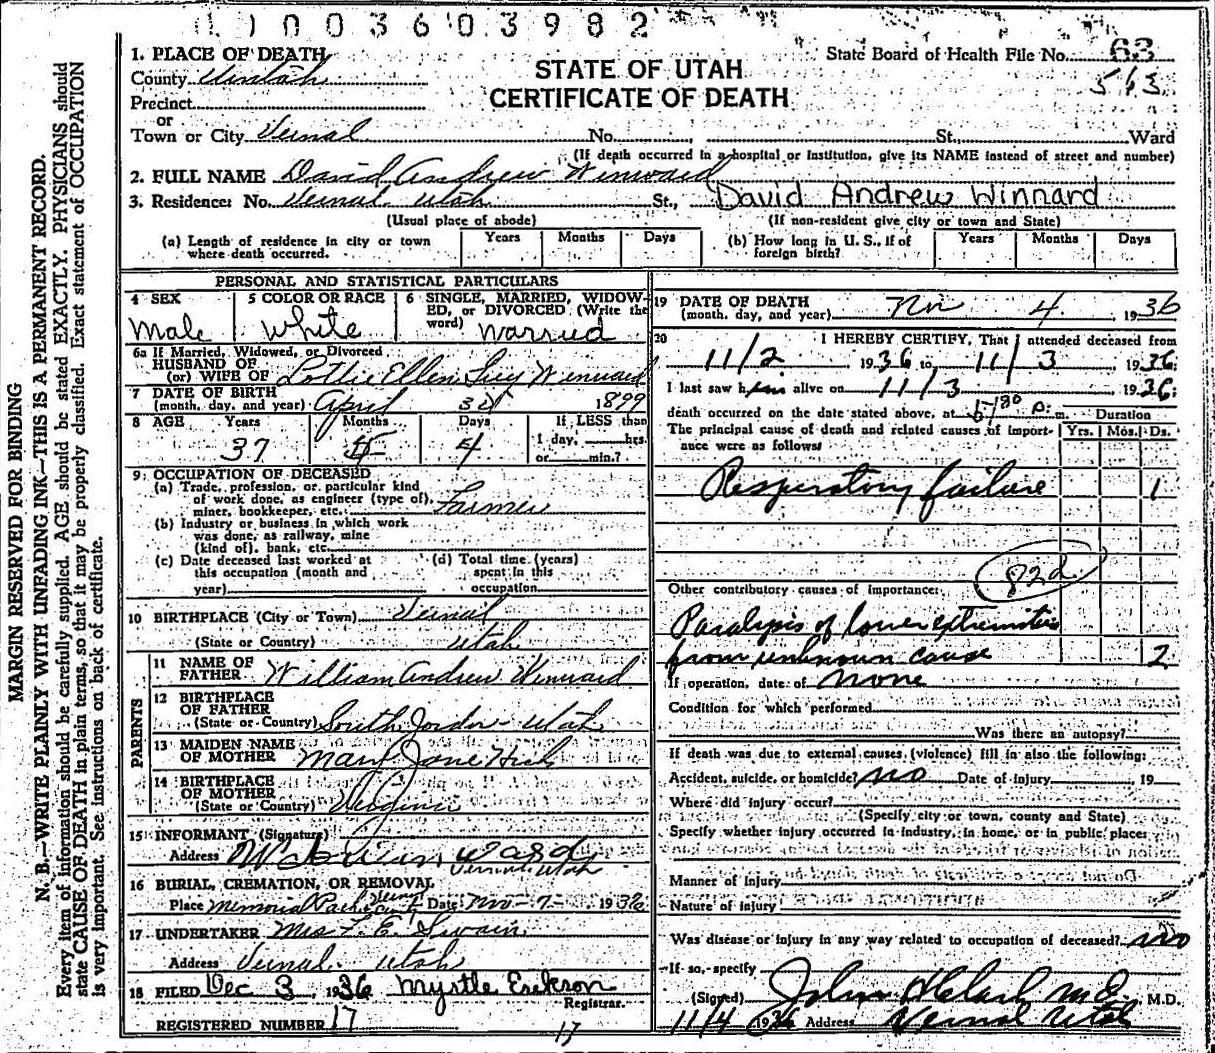 1 1 0 0 3 6 0 3 9 8 2
1. PLACE OF DEATH
County Uintah
Precinct
or
Town or City Vernal No. St. Ward
STATE OF UTAH
CERTIFICATE OF DEATH
State Board of Health File No. 63
563
(If death occurred in a hospital or institution, give its NAME instead of street and number)
2. FULL NAME David Andrew Winward
3. Residence: No. Vernal Utah St., David Andrew Winnard
(Usual place of abode) (If non-resident give city or town and State)
(a) Length of residence in city or town where death occurred. Years Months Days (b) How long in U. S., if of foreign birth? Years Months Days
MARGIN RESERVED FOR BINDING
N. B.—WRITE PLAINLY WITH UNFADING INK—THIS IS A PERMANENT RECORD.
Every item of information should be carefully supplied. AGE should be stated EXACTLY. PHYSICIANS should
state CAUSE OF DEATH in plain terms, so that it may be properly classified. Exact statement of OCCUPATION
is very important. See instructions on back of certificate.
PERSONAL AND STATISTICAL PARTICULARS
4 SEX 5 COLOR OR RACE 6 SINGLE, MARRIED, WIDOW-
ED, or DIVORCED (Write the
word)
Male White Married
6a If Married, Widowed, or Divorced
HUSBAND OF
(or) WIFE OF Lottie Ellen Winward
7 DATE OF BIRTH
(month, day, and year) April 1899
8 AGE Years Months Days If LESS than
1 day, hrs.
or min.?
37 4
9 OCCUPATION OF DECEASED
(a) Trade, profession, or particular kind
of work done, as engineer (type of),
miner, bookkeeper, etc. Farmer
(b) Industry or business in which work
was done, as railway, mine
(kind of), bank, etc.
(c) Date deceased last worked at
this occupation (month and
year)
(d) Total time (years)
spent in this
occupation
10 BIRTHPLACE (City or Town) Vernal
(State or Country) Utah
PARENTS
11 NAME OF
FATHER William Andrew Winward
12 BIRTHPLACE
OF FATHER
(State or Country) South Jordan Utah
13 MAIDEN NAME
OF MOTHER Mary Jane Hick
14 BIRTHPLACE
OF MOTHER
(State or Country) Virginia
15 INFORMANT (Signature)
Address Ward
Vernal, Utah
16 BURIAL, CREMATION, OR REMOVAL
Place Memorial Park Date Nov-7- 1936
17 UNDERTAKER Mrs F. E. Swain
Address Vernal Utah
18 FILED Dec 3, 1936 Myrtle Erekson
Registrar.
REGISTERED NUMBER 17
17
19 DATE OF DEATH
(month, day, and year) Nov 4 1936
20 I HEREBY CERTIFY, That I attended deceased from
11/2 1936 to 11/3, 1936;
I last saw him alive on 11/3 1936;
death occurred on the date stated above, at p. m.
Duration
The principal cause of death and related causes of import-
ance were as follows: Yrs. Mos. Ds.
Respiratory failure 1
82d
Other contributory causes of importance:
Paralysis of lower extremities
from unknown cause 2
If operation, date of none
Condition for which performed
Was there an autopsy?
If death was due to external causes (violence) fill in also the following:
Accident, suicide, or homicide? no Date of injury 19
Where did injury occur?
(Specify city or town, county and State)
Specify whether injury occurred in industry, in home, or in public place
Manner of Injury
Nature of injury
Was disease or injury in any way related to occupation of deceased? no
If so, specify
(Signed) John M.D. M.D.
11/4 1936 Address Vernal Utah